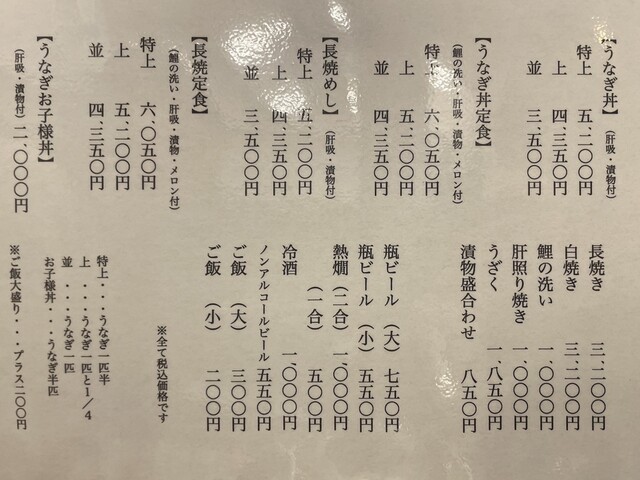 【うなぎ丼】（肝吸・漬物付）
特上 五、二〇〇円
上 四、三五〇円
並 三、五〇〇円
【うなぎ丼定食】
（鯉の洗い・肝吸・漬物・メロン付）
特上 六、〇五〇円
上 五、二〇〇円
並 四、三五〇円
【長焼めし】（肝吸・漬物付）
特上 五、二〇〇円
上 四、三五〇円
並 三、五〇〇円
【長焼定食】
（鯉の洗い・肝吸・漬物・メロン付）
特上 六、〇五〇円
上 五、二〇〇円
並 四、三五〇円
【うなぎお子様丼】
（肝吸・漬物付）二、〇〇〇円
長焼き 三、二〇〇円
白焼き 三、二〇〇円
鯉の洗い 一、〇〇〇円
肝照り焼き 一、〇〇〇円
うざく 一、八五〇円
漬物盛合わせ 八五〇円
瓶ビール（大）七五〇円
瓶ビール（小）五五〇円
熱燗（二合）一、〇〇〇円
（一合）五〇〇円
冷酒 一、〇〇〇円
ノンアルコールビール 五五〇円
ご飯（大）三〇〇円
ご飯（小）二〇〇円
※全て税込価格です
特上・・・うなぎ一匹半
上・・・うなぎ一匹と1／4
並・・・うなぎ一匹
お子様丼・・・うなぎ半匹
※ご飯大盛り・・・プラス二〇〇円